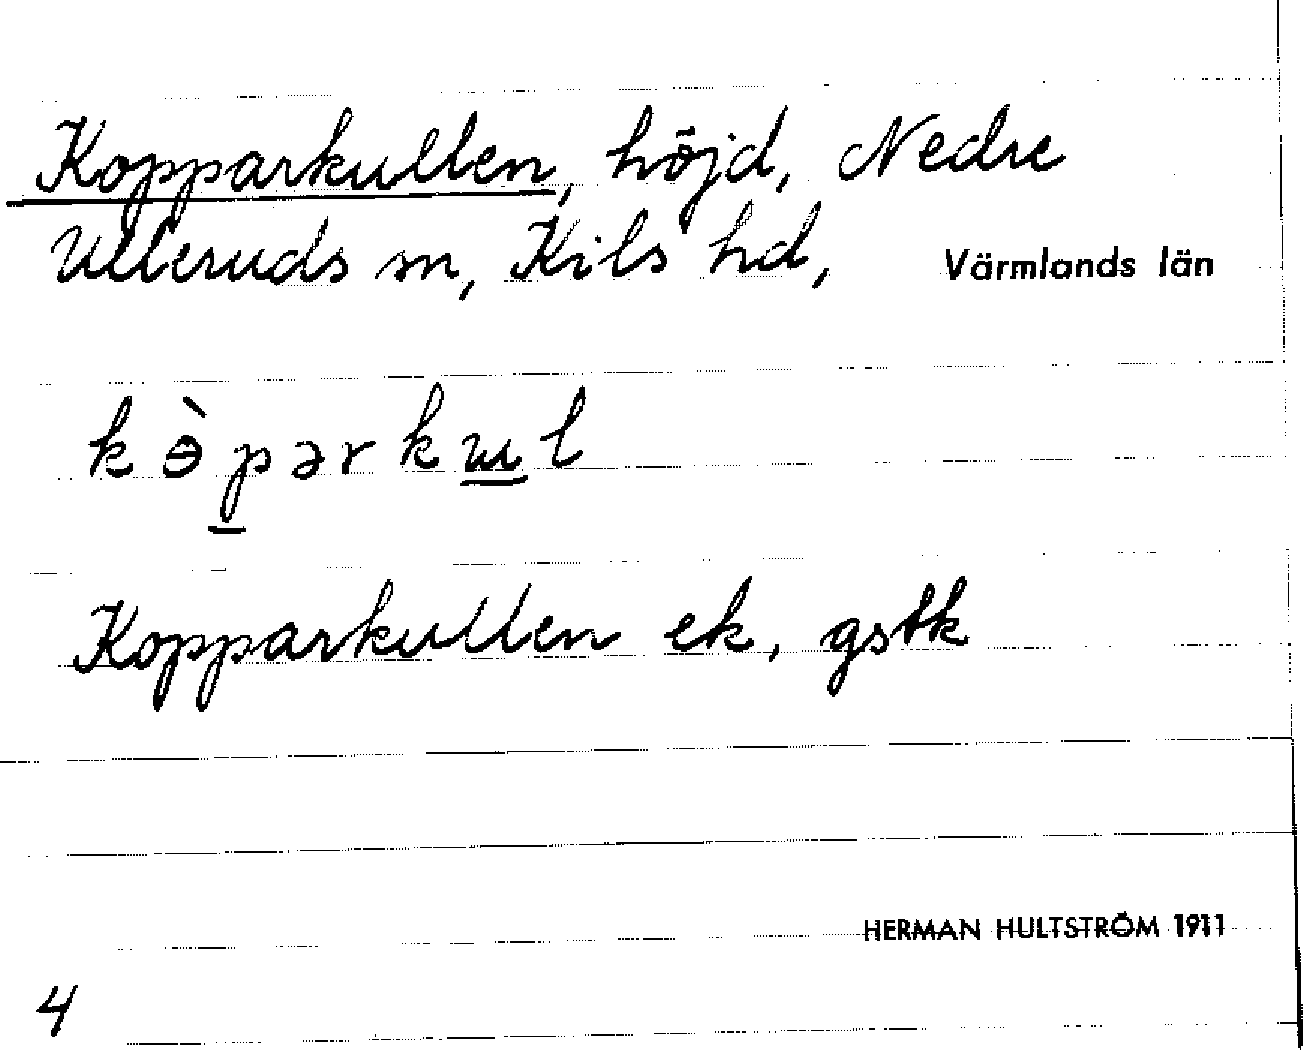 Kopparkullen, höjd, Nedre
Ulleruds sn, Kils hd, Värmlands län
kɵ̀p̲ərkɯ̲l
Kopparkullen ek, gstk
HERMAN HULTSTRÖM 1911
4